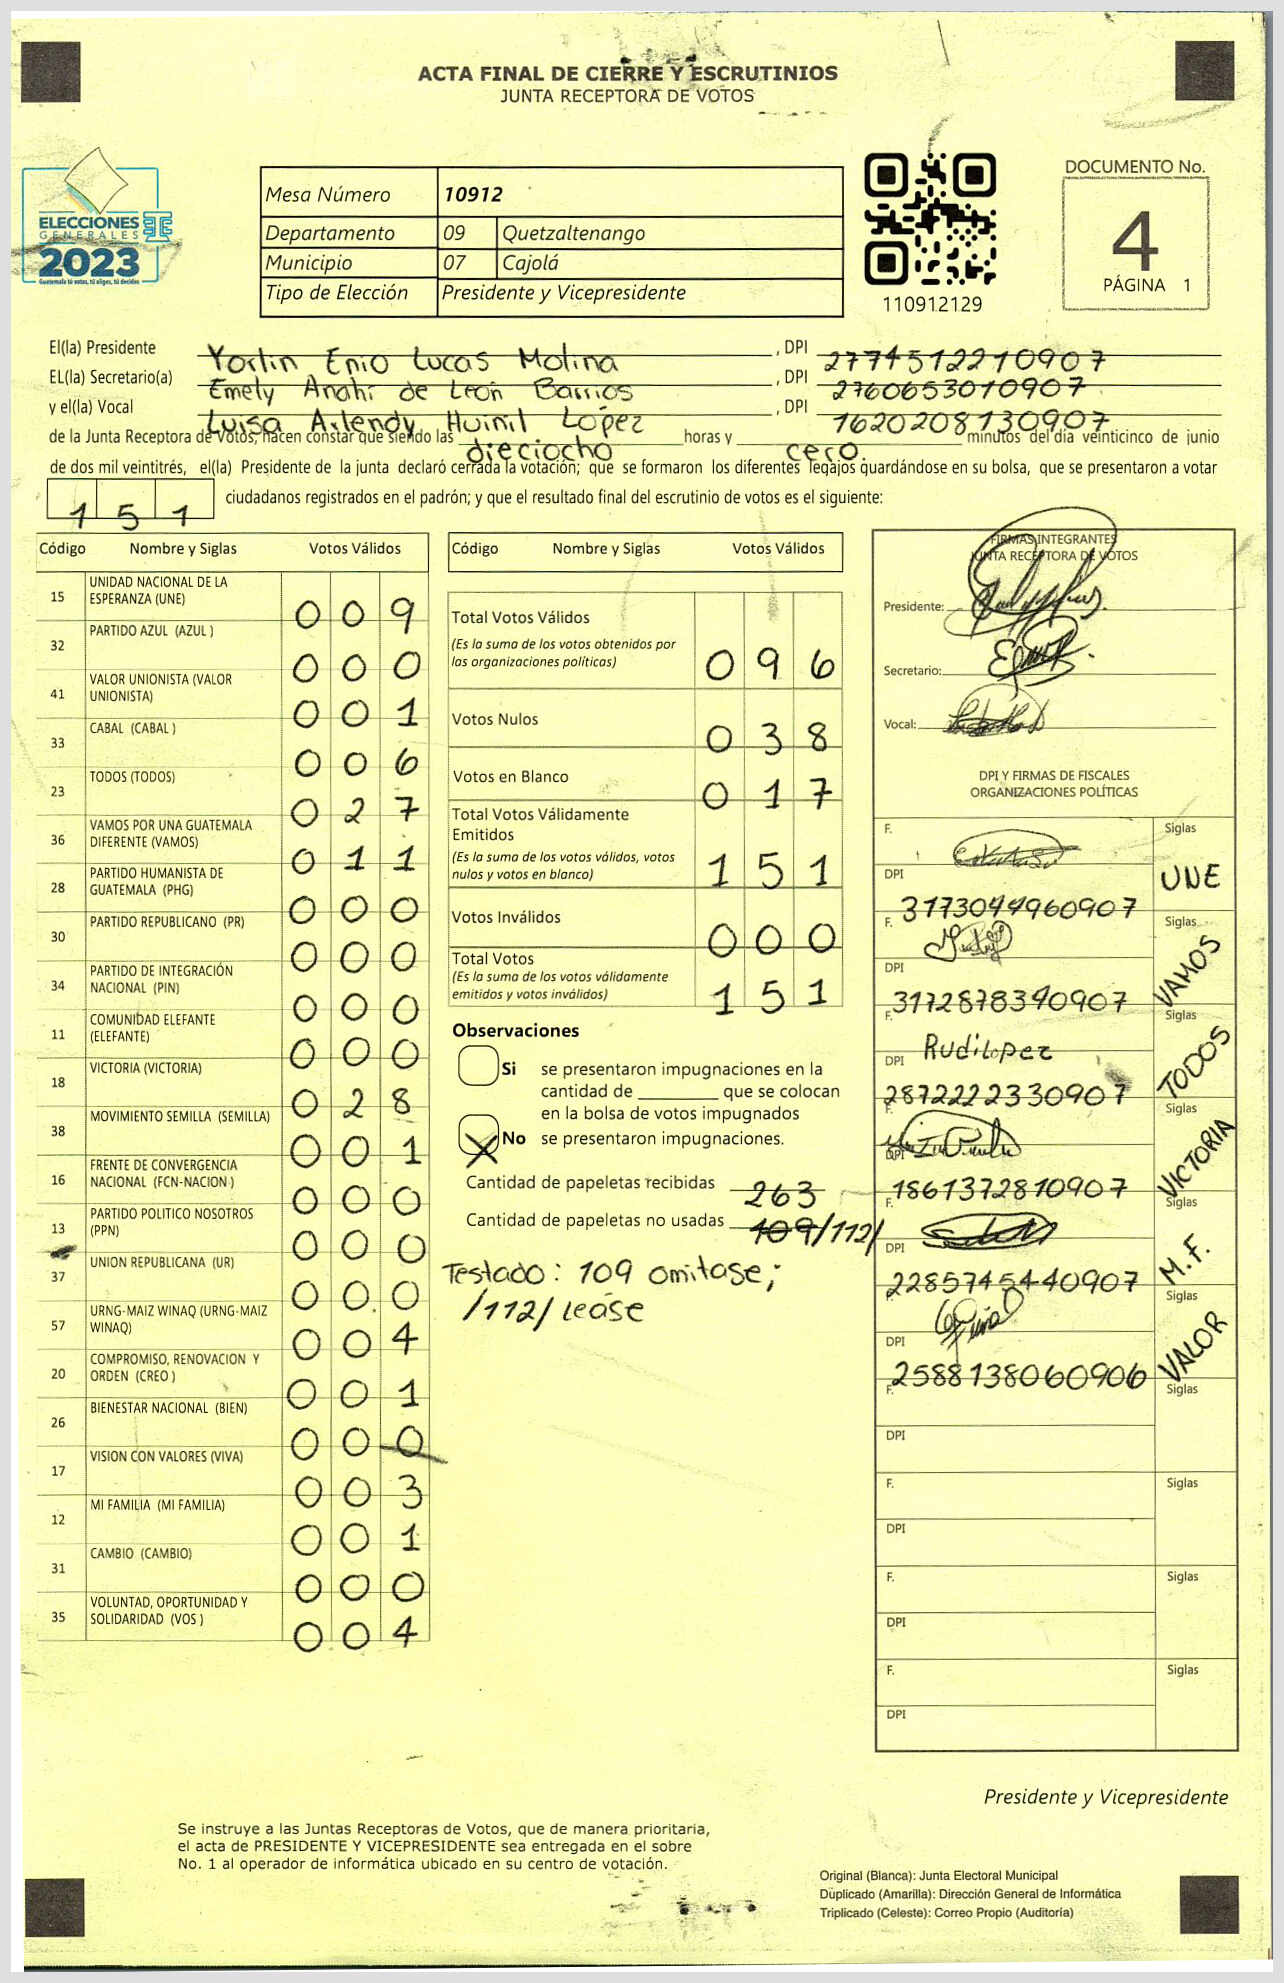 ACTA FINAL DE CIERRE Y ESCRUTINIOS
JUNTA RECEPTORA DE VOTOS
ELECCIONES
GENERALES
2023
Guatemala tú votas, tú eliges, tú decides
Mesa Número 10912
Departamento 09 Quetzaltenango
Municipio 07 Cajolá
Tipo de Elección Presidente y Vicepresidente
110912129
DOCUMENTO No.
4
PÁGINA 1
El(la) Presidente Yorlin Enio Lucas Molina , DPI 2774512210907
EL(la) Secretario(a) Emely Anahí de León Barrios , DPI 2760653010907
y el(la) Vocal Luisa Arlendy Huinil López , DPI 1620208130907
de la Junta Receptora de Votos, hacen constar que siendo las dieciocho horas y cero. minutos del día veinticinco de junio
de dos mil veintitrés, el(la) Presidente de la junta declaró cerrada la votación; que se formaron los diferentes legajos guardándose en su bolsa, que se presentaron a votar
151 ciudadanos registrados en el padrón; y que el resultado final del escrutinio de votos es el siguiente:
Código Nombre y Siglas Votos Válidos
15 UNIDAD NACIONAL DE LA ESPERANZA (UNE) 009
32 PARTIDO AZUL (AZUL ) 000
41 VALOR UNIONISTA (VALOR UNIONISTA) 001
33 CABAL (CABAL ) 006
23 TODOS (TODOS) 027
36 VAMOS POR UNA GUATEMALA DIFERENTE (VAMOS) 011
28 PARTIDO HUMANISTA DE GUATEMALA (PHG) 000
30 PARTIDO REPUBLICANO (PR) 000
34 PARTIDO DE INTEGRACIÓN NACIONAL (PIN) 000
11 COMUNIDAD ELEFANTE (ELEFANTE) 000
18 VICTORIA (VICTORIA) 028
38 MOVIMIENTO SEMILLA (SEMILLA) 001
16 FRENTE DE CONVERGENCIA NACIONAL (FCN-NACION ) 000
13 PARTIDO POLITICO NOSOTROS (PPN) 000
37 UNION REPUBLICANA (UR) 000
57 URNG-MAIZ WINAQ (URNG-MAIZ WINAQ) 004
20 COMPROMISO, RENOVACION Y ORDEN (CREO ) 001
26 BIENESTAR NACIONAL (BIEN) 000
17 VISION CON VALORES (VIVA) 003
12 MI FAMILIA (MI FAMILIA) 001
31 CAMBIO (CAMBIO) 000
35 VOLUNTAD, OPORTUNIDAD Y SOLIDARIDAD (VOS ) 004
Código Nombre y Siglas Votos Válidos
Total Votos Válidos
(Es la suma de los votos obtenidos por
las organizaciones políticas) 096
Votos Nulos 038
Votos en Blanco 017
Total Votos Válidamente
Emitidos
(Es la suma de los votos válidos, votos
nulos y votos en blanco) 151
Votos Inválidos 000
Total Votos
(Es la suma de los votos válidamente
emitidos y votos inválidos) 151
Observaciones
Si se presentaron impugnaciones en la
cantidad de ________ que se colocan
en la bolsa de votos impugnados
X No se presentaron impugnaciones.
Cantidad de papeletas recibidas 263
Cantidad de papeletas no usadas 109/112/
Testado: 109 omitase;
/112/ lease
FIRMAS INTEGRANTES
JUNTA RECEPTORA DE VOTOS
Presidente:
Secretario:
Vocal:
DPI Y FIRMAS DE FISCALES
ORGANIZACIONES POLÍTICAS
F. Siglas
DPI 3173044960907 UNE
F. Siglas
DPI 3172878390907 VAMOS
F. Rudi Lopez Siglas
DPI 2872222330907 TODOS
F. Siglas
DPI 1861372810907 VICTORIA
F. Siglas
DPI 2285745440907 M.F.
F. Siglas
DPI 2588138060906 VALOR
F. Siglas
DPI
F. Siglas
DPI
F. Siglas
DPI
F. Siglas
DPI
Presidente y Vicepresidente
Se instruye a las Juntas Receptoras de Votos, que de manera prioritaria,
el acta de PRESIDENTE Y VICEPRESIDENTE sea entregada en el sobre
No. 1 al operador de informática ubicado en su centro de votación.
Original (Blanca): Junta Electoral Municipal
Duplicado (Amarilla): Dirección General de Informática
Triplicado (Celeste): Correo Propio (Auditoría)